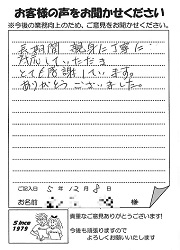 お客様の声をお聞かせください
※今後の業務向上のため、ご意見をお聞かせください。
長期間 親身に丁寧に
対応していただき
とても感謝しています。
ありがとうございました。
ご記入日 5年12月8日
お名前 様
Since
1979
貴重なご意見ありがとうございます!
今後も頑張りますので
よろしくお願いいたします